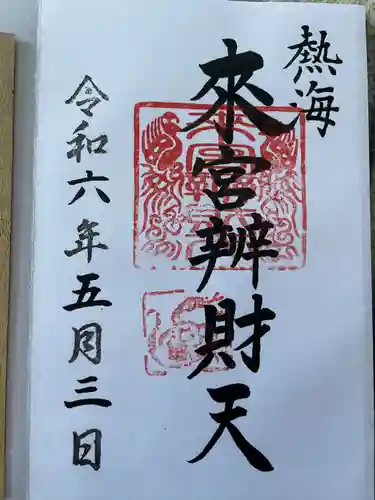 熱海
來宮辨財天
令和六年五月三日